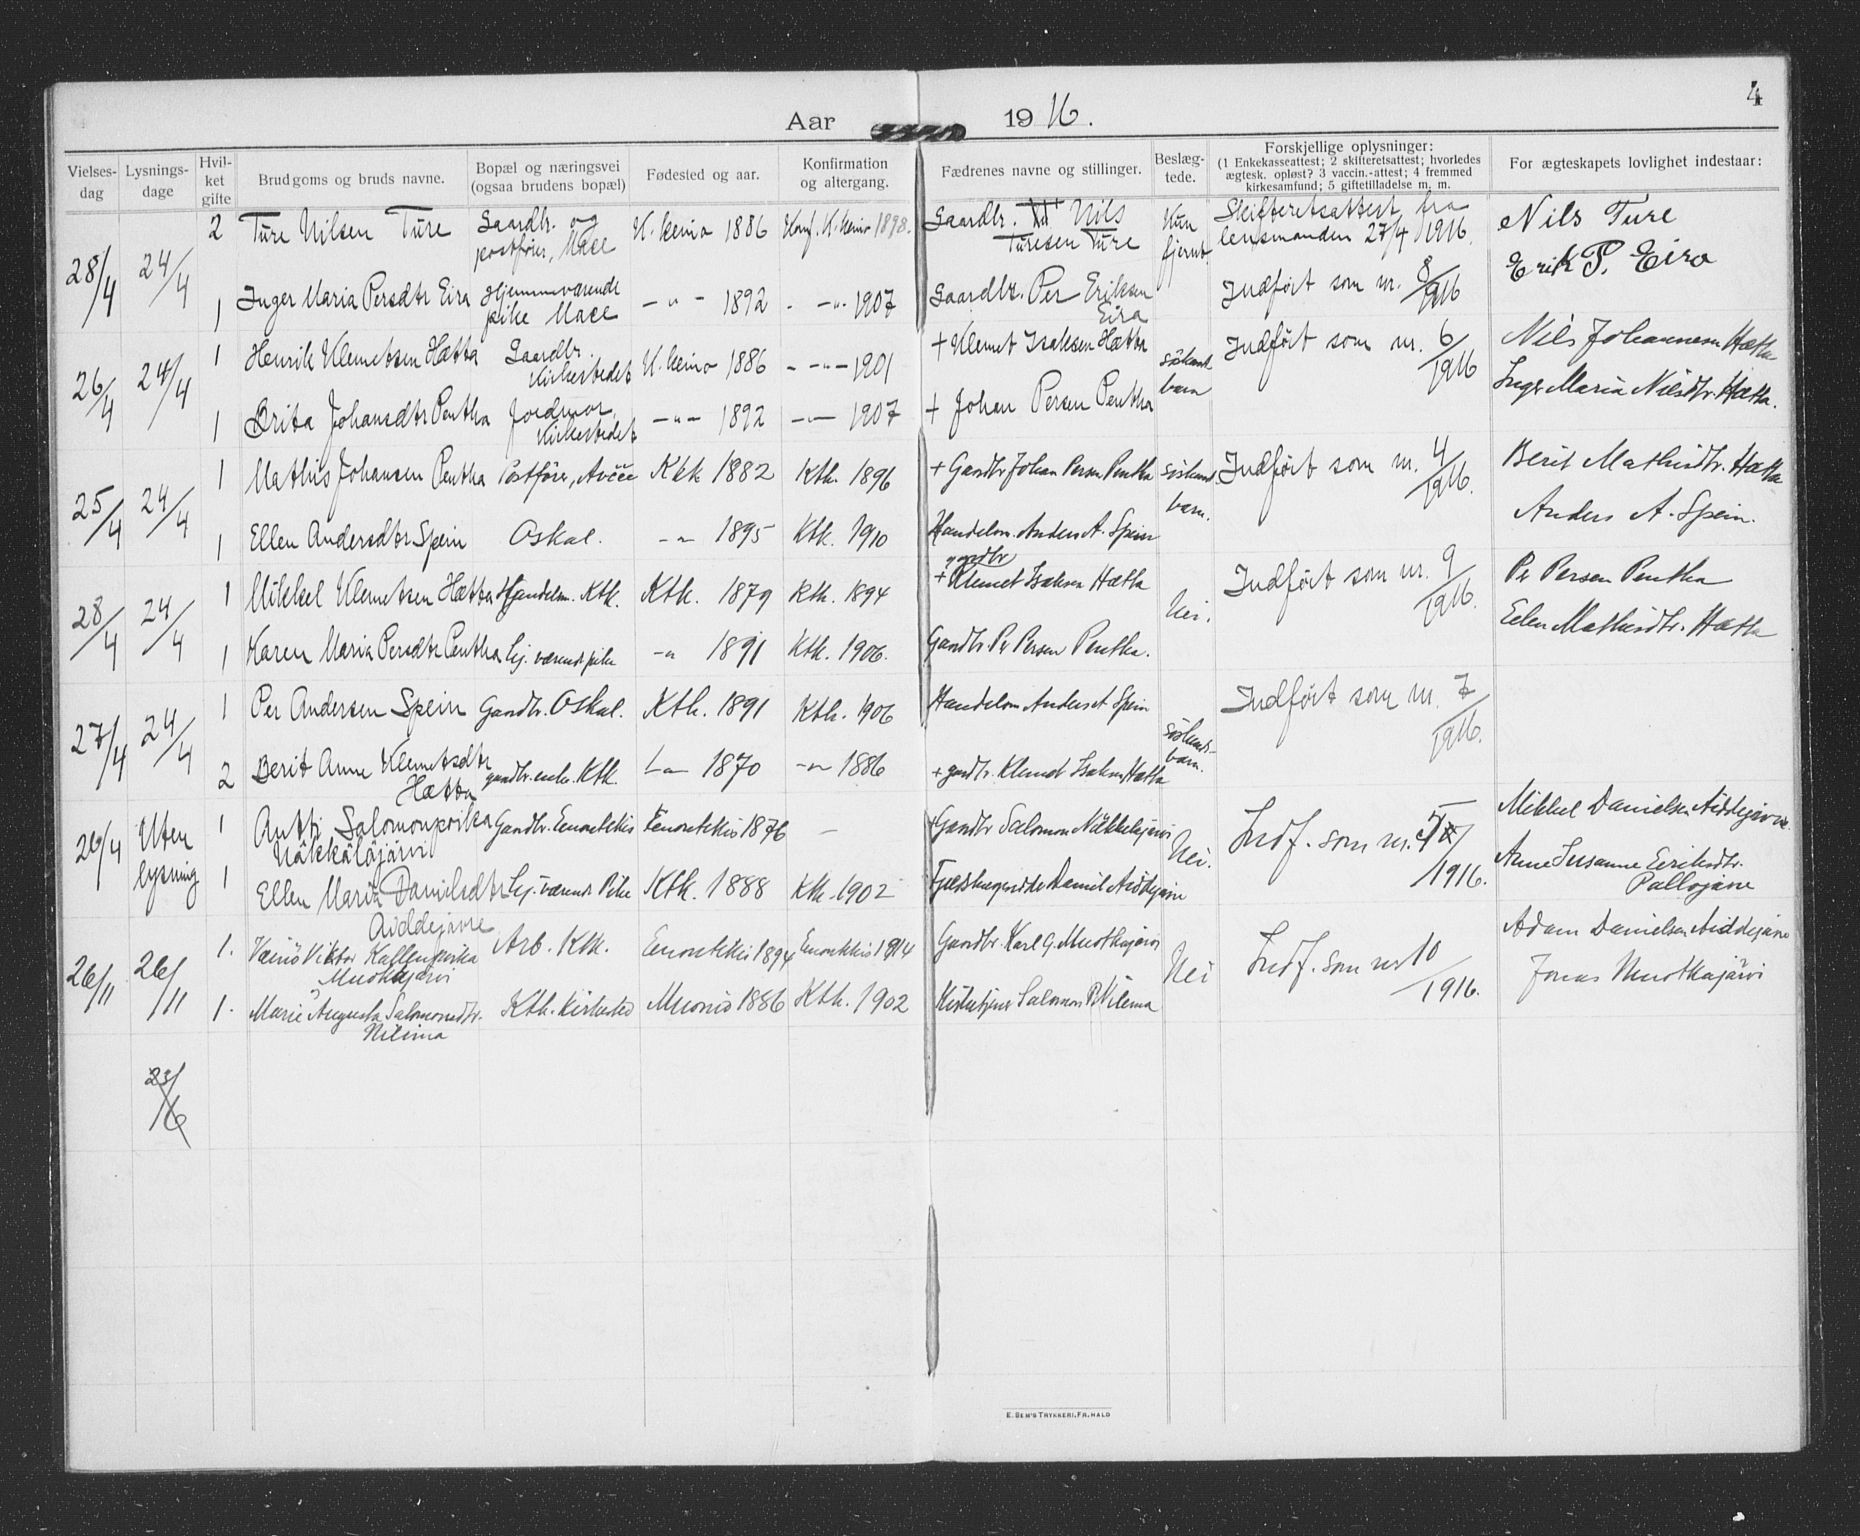 4
Aar 1916.
Vielses-dag
Lysnings-dage
Hvil-ket gifte
Brudgoms og bruds navne.
Bopæl og næringsvei (ogsaa brudens bopæl)
Fødested og aar.
Konfirmation og altergang.
Fædrenes navne og stillinger.
Beslæg-tede.
Forskjellige oplysninger: (1 Enkekasseattest; 2 skifteretsattest; hvorledes ægtesk. opløst? 3 vaccin.-attest; 4 fremmed kirkesamfund; 5 giftetilladelse m. m.
For ægteskapets lovlighet indestaar:
28/4 24/4
2 Ture Nilsen Ture Gaardbr. og postfører, Mace K.keino 1886 Konf. K.keino 1898. Gaardbr. Nils Turesen Ture Kun fjernt. Skifteretsattest fra lensmanden 27/4 1916. Nils Ture
1 Inger Maria Persdtr Eira Hjemmeværende pike Mace -"- 1892 - -"- 1907 Gaardbr. Per Eriksen Eira Indført som nr. 8/1916 Erik P. Eira
26/4 24/4
1 Henrik Klemetsen Hætta Gaardbr. Kirkestedet K.keino 1886 - -"- 1901 + Klemet Isaksen Hætta söskend barn Indført som nr. 6/1916 Nils Johannesen Hætta
1 Brita Johansdtr Pentha Jordmor, Kirkestedet -"- 1892 -"- 1907 + Johan Persen Pentha Inger Maria Nilsdtr. Hætta.
25/4 24/4
1 Mathis Johansen Pentha Postfører, Avčče Ktk 1882 Ktk. 1896 + Gardbr Johan Persen Pentha söskend barn. Indført som nr. 4/1916. Berit Mathisdtr. Hætta
1 Ellen Andersdtr Spein Oskal. -"- 1895 Ktk. 1910 Handelsm. Anders A. Spein Anders A. Spein.
28/4 24/4
1 Mikkel Klemetsen Hætta Handelsm. Ktk. Ktk. 1879 Ktk. 1894 gardbr + Klemet Isaksen Hætta Nei. Indført som nr. 9/1916. Per Persen Pentha
1 Karen Maria Persdtr Pentha hj. værende pike -"- 1891 Ktk. 1906. Gardbr Per Persen Pentha. Ellen Mathisdtr. Hætta
27/4 24/4
1 Per Andersen Spein Gardbr. Oskal. Ktk. 1891 Ktk. 1906 Handelsm Anders A Spein söskend-barn. Indført som nr. 7/1916.
2 Berit Anne Klemetsdtr Hætta gardbr. enke. Ktk. -"- 1870 -"- 1886 + gardbr. Klemet Isaksen Hætta
26/4 Uten lysning
1 Antti Salomonpoika Näkkäläjärvi Gardbr. Enontekis Enontekis 1876 - + Gardbr Salomon Näkkäläjärvi Nei. Indf. som nr. 5/1916. Mikkel Danielsen Aiddejavre
1 Ellen Maria Danielsdtr Aiddejavre hj. værende Pike Ktk. 1888 Ktk. 1902 Daniel Aiddejavre Anne Susanne Eriksdtr. Pallojarve
26/11 26/11
1. Väinö Viktor Kallenpoika Muotkajärvi Arb. Ktk. Enontekis 1894 Enontekis 1914 Gardbr. Karl G. Muotkajärvi Nei Indf. som nr 10/1916. Adam Danielsen Aiddejavre
1. Marie Augusta Salomonsdtr. Nilima Ktk. Kirkested Muonio 1886 Ktk. 1902 Kirketjener Salomon P. Nilima Jonas Muotkajärvi
23/6
E. SEM'S TRYKKERI, FR. HALD